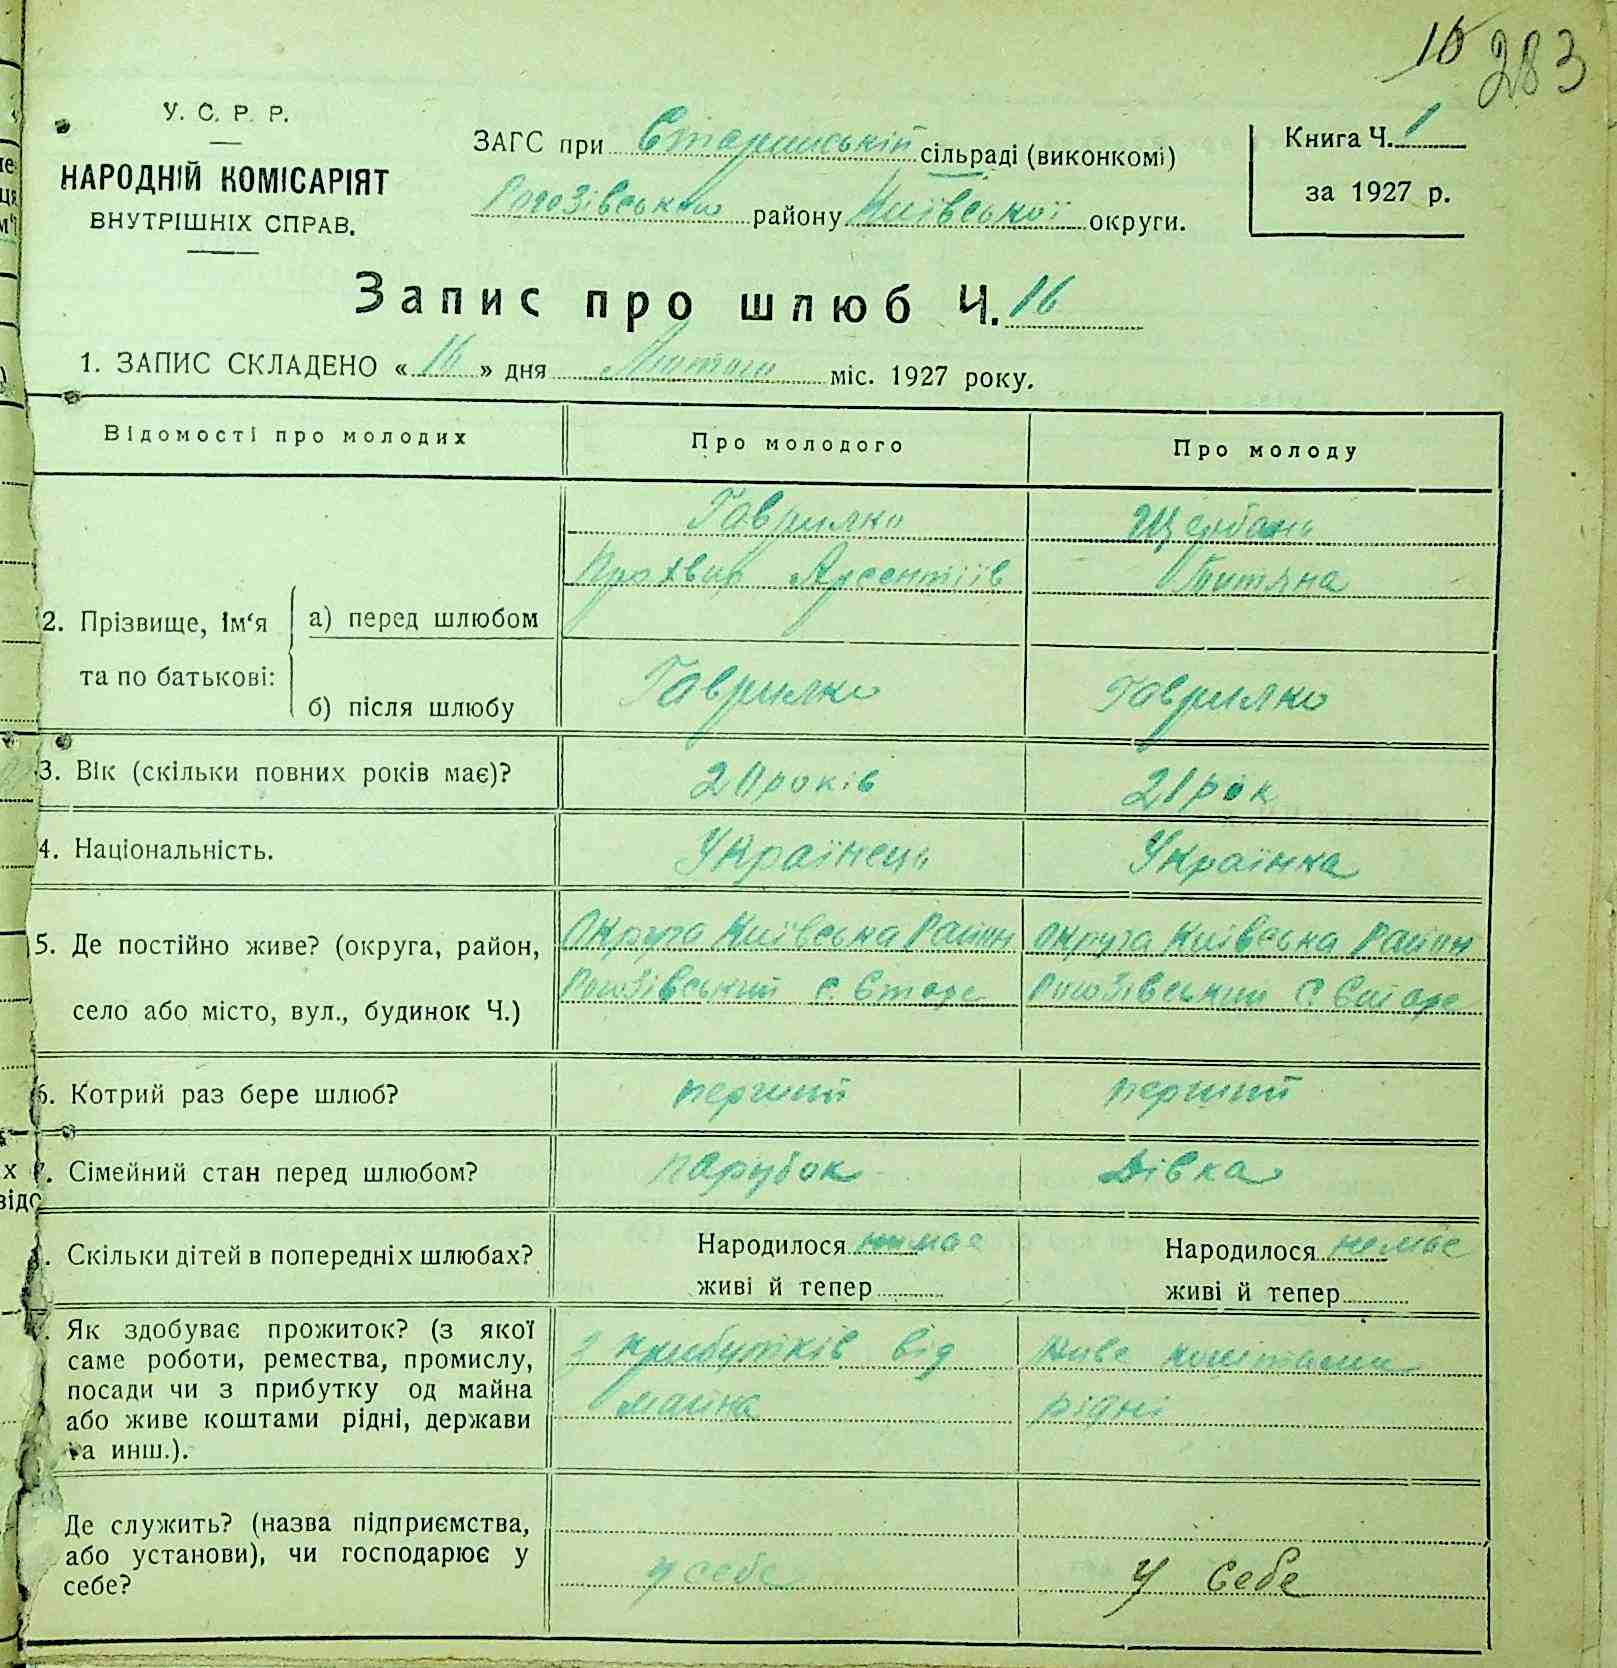 16 283
У. С. Р. Р.
НАРОДНІЙ КОМІСАРІЯТ
ВНУТРІШНІХ СПРАВ.
ЗАГС при Старинській сільраді (виконкомі)
Рогозівського району Київської округи.
Книга Ч. 1
за 1927 р.
Запис про шлюб Ч. 16
1. ЗАПИС СКЛАДЕНО « 16 » дня Лютого міс. 1927 року.
Відомості про молодих Про молодого Про молоду
2. Прізвище, ім‘я та по батькові:
а) перед шлюбом
Гаврилко Щербань
Арсентіів Титяна
б) після шлюбу Гаврилко Гаврилко
3. Вік (скільки повних років має)? 20 років 21 рок
4. Національність. Українець Українка
5. Де постійно живе? (округа, район, Округа Київська Район Округа Київська Район
село або місто, вул., будинок Ч.) Рогозівський с. Старе Рогозівський с. Старе
6. Котрий раз бере шлюб? перший перший
7. Сімейний стан перед шлюбом? парубок Дівка
Скільки дітей в попередніх шлюбах? Народилося немає Народилося немає
живі й тепер живі й тепер
Як здобуває прожиток? (з якої
саме роботи, ремества, промислу,
посади чи з прибутку од майна
або живе коштами рідні, держави
та инш.).
з прибутків від
майна
живе коштами
рідні
Де служить? (назва підприємства,
або установи), чи господарює у
себе?
у себе у себе